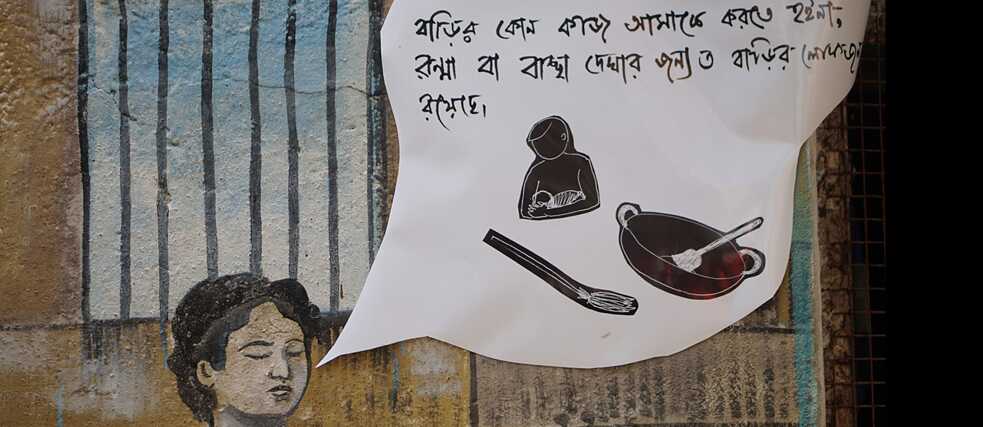 বাড়ির কোন কাজ আমাকে করতে হইনা,
রান্না বা বাচ্চা দেখার জন্য ত বাড়ির লোকজন
রয়েছে।